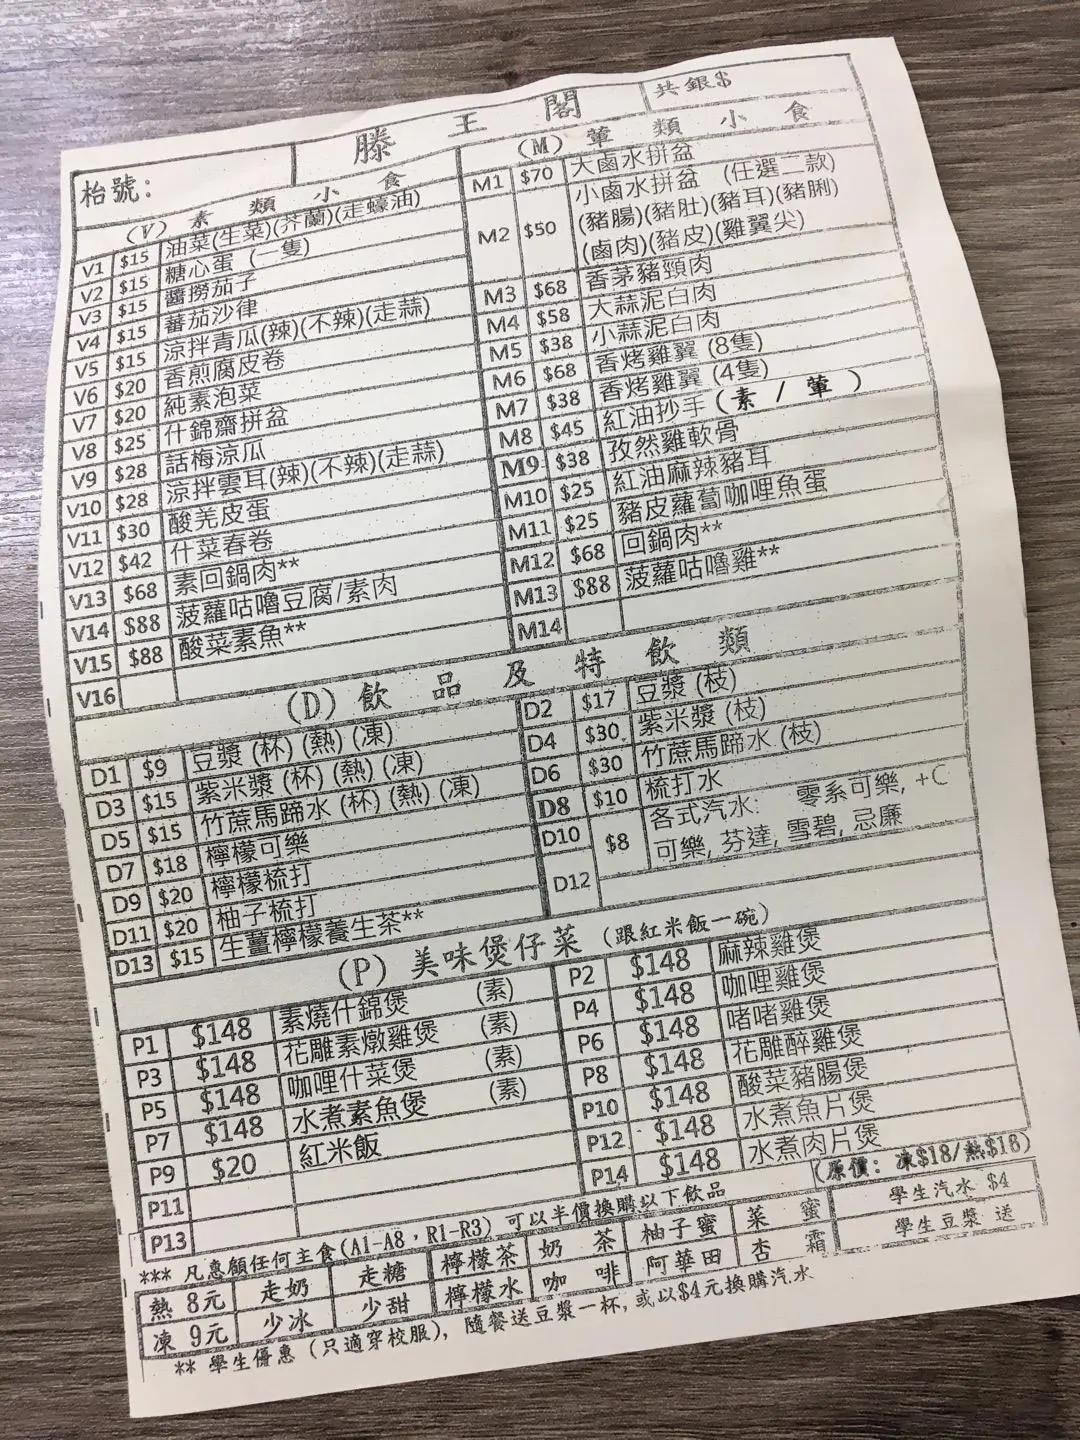 滕王閣
共銀$
枱號:
(V) 素類小食
V1 $15 油菜(生菜)(芥蘭)(走蠔油)
V2 $15 糖心蛋 (一隻)
V3 $15 醬撈茄子
V4 $15 蕃茄沙律
V5 $15 涼拌青瓜(辣)(不辣)(走蒜)
V6 $20 香煎腐皮卷
V7 $20 純素泡菜
V8 $25 什錦齋拼盆
V9 $28 話梅涼瓜
V10 $28 涼拌雲耳(辣)(不辣)(走蒜)
V11 $30 酸羌皮蛋
V12 $42 什菜春卷
V13 $68 素回鍋肉**
V14 $88 菠蘿咕嚕豆腐/素肉
V15 $88 酸菜素魚**
V16
(M) 葷類小食
M1 $70 大鹵水拼盆
M2 $50 小鹵水拼盆 (任選二款)
(豬腸)(豬肚)(豬耳)(豬脷)
(鹵肉)(豬皮)(雞翼尖)
M3 $68 香茅豬頸肉
M4 $58 大蒜泥白肉
M5 $38 小蒜泥白肉
M6 $68 香烤雞翼 (8隻)
M7 $38 香烤雞翼 (4隻)
M8 $45 紅油抄手 (素 / 葷)
M9 $38 孜然雞軟骨
M10 $25 紅油麻辣豬耳
M11 $25 豬皮蘿蔔咖哩魚蛋
M12 $68 回鍋肉**
M13 $88 菠蘿咕嚕雞**
M14
(D) 飲品及特飲類
D1 $9 豆漿 (杯) (熱) (凍)
D3 $15 紫米漿 (杯) (熱) (凍)
D5 $15 竹蔗馬蹄水 (杯) (熱) (凍)
D7 $18 檸檬可樂
D9 $20 檸檬梳打
D11 $20 柚子梳打
D13 $15 生薑檸檬養生茶**
D2 $17 豆漿 (枝)
D4 $30 紫米漿 (枝)
D6 $30 竹蔗馬蹄水 (枝)
D8 $10 梳打水
D10 $8 各式汽水: 零系可樂, +C
可樂, 芬達, 雪碧, 忌廉
D12
(P) 美味煲仔菜 (跟紅米飯一碗)
P1 $148 素燒什錦煲 (素)
P3 $148 花雕素燉雞煲 (素)
P5 $148 咖哩什菜煲 (素)
P7 $148 水煮素魚煲 (素)
P9 $20 紅米飯
P11
P13
P2 $148 麻辣雞煲
P4 $148 咖哩雞煲
P6 $148 啫啫雞煲
P8 $148 花雕醉雞煲
P10 $148 酸菜豬腸煲
P12 $148 水煮魚片煲
P14 $148 水煮肉片煲
*** 凡惠顧任何主食(A1-A8，R1-R3) 可以半價換購以下飲品 (原價: 凍$18/熱$16)
熱 8元 走奶 走糖 檸檬茶 奶茶 柚子蜜 菜蜜 學生汽水 $4
凍 9元 少冰 少甜 檸檬水 咖啡 阿華田 杏霜 學生豆漿 送
** 學生優惠 (只適穿校服), 隨餐送豆漿一杯, 或以$4元換購汽水